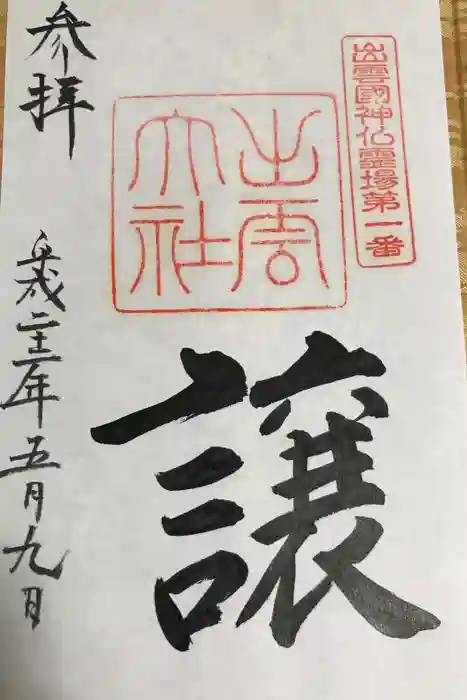 出雲國神仏霊場第一番
出雲
大社
譲
参拝
平成二十三年五月九日